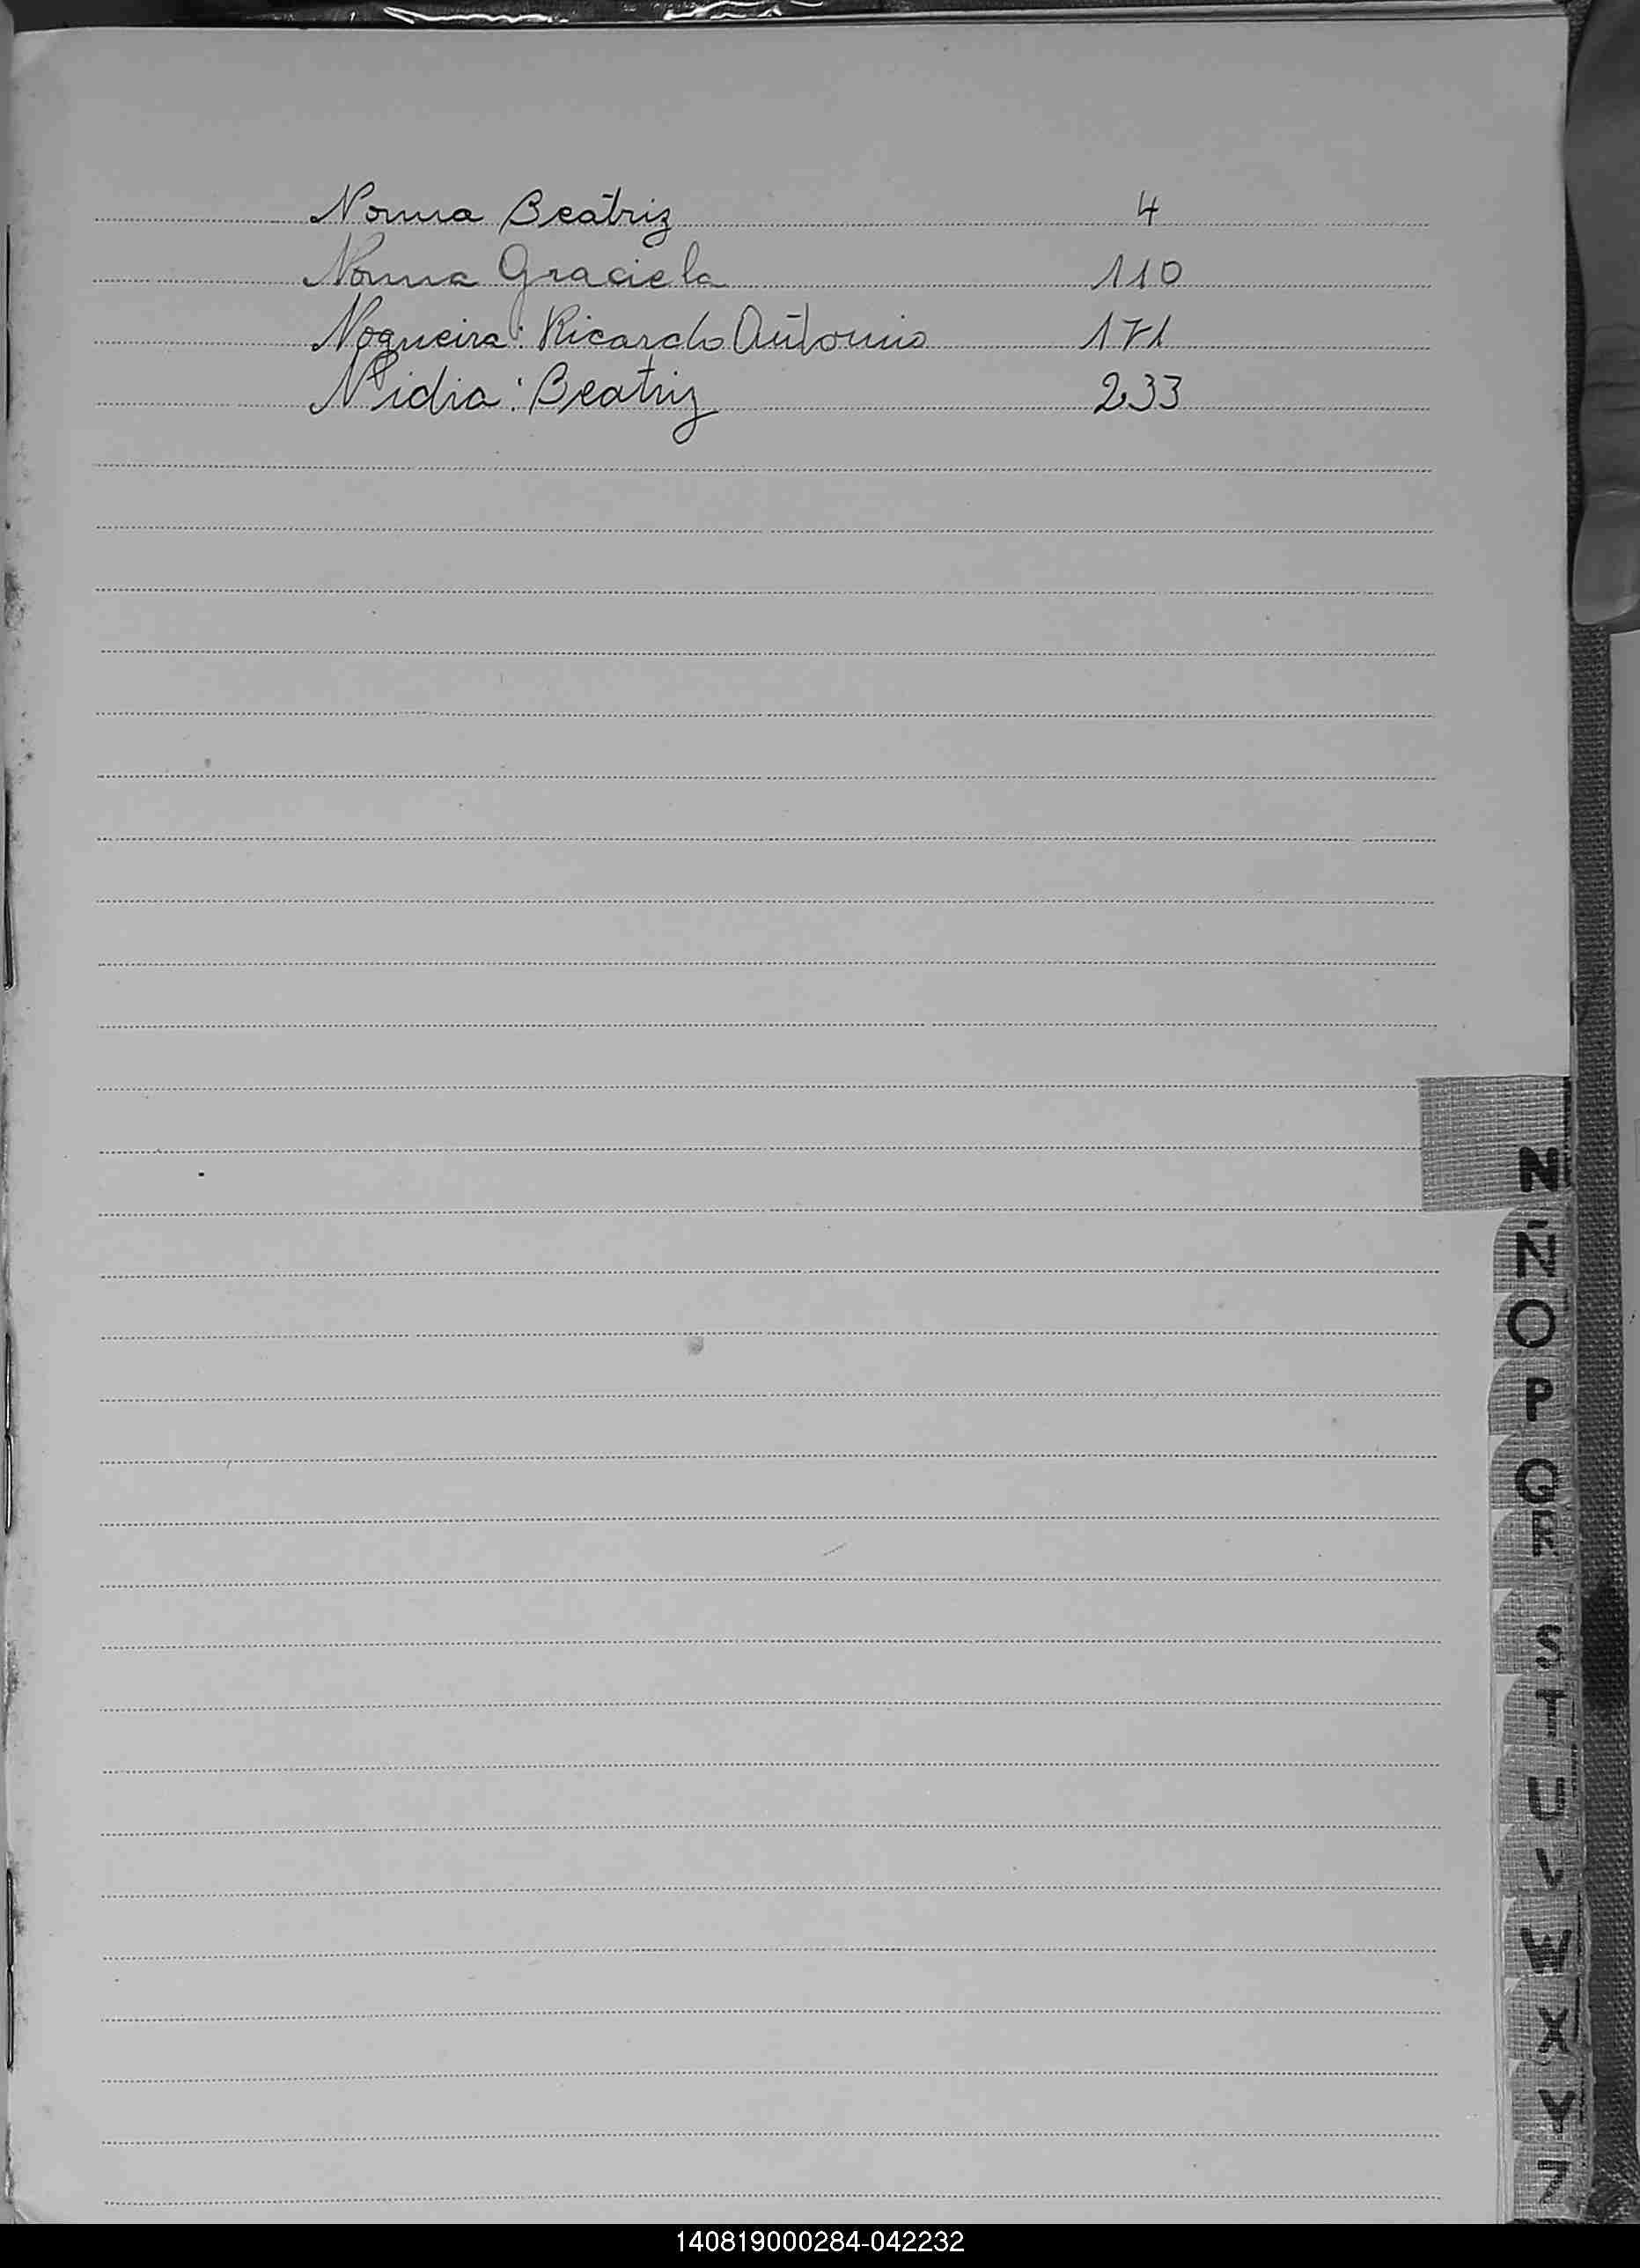 Norma Beatriz 4
Norma Graciela 110
Nogueira: Ricardo Antonio 171
Nidia: Beatriz 233
N
Ñ
O
P
Q
R
S
T
U
V
W
X
Y
Z
140819000284-042232